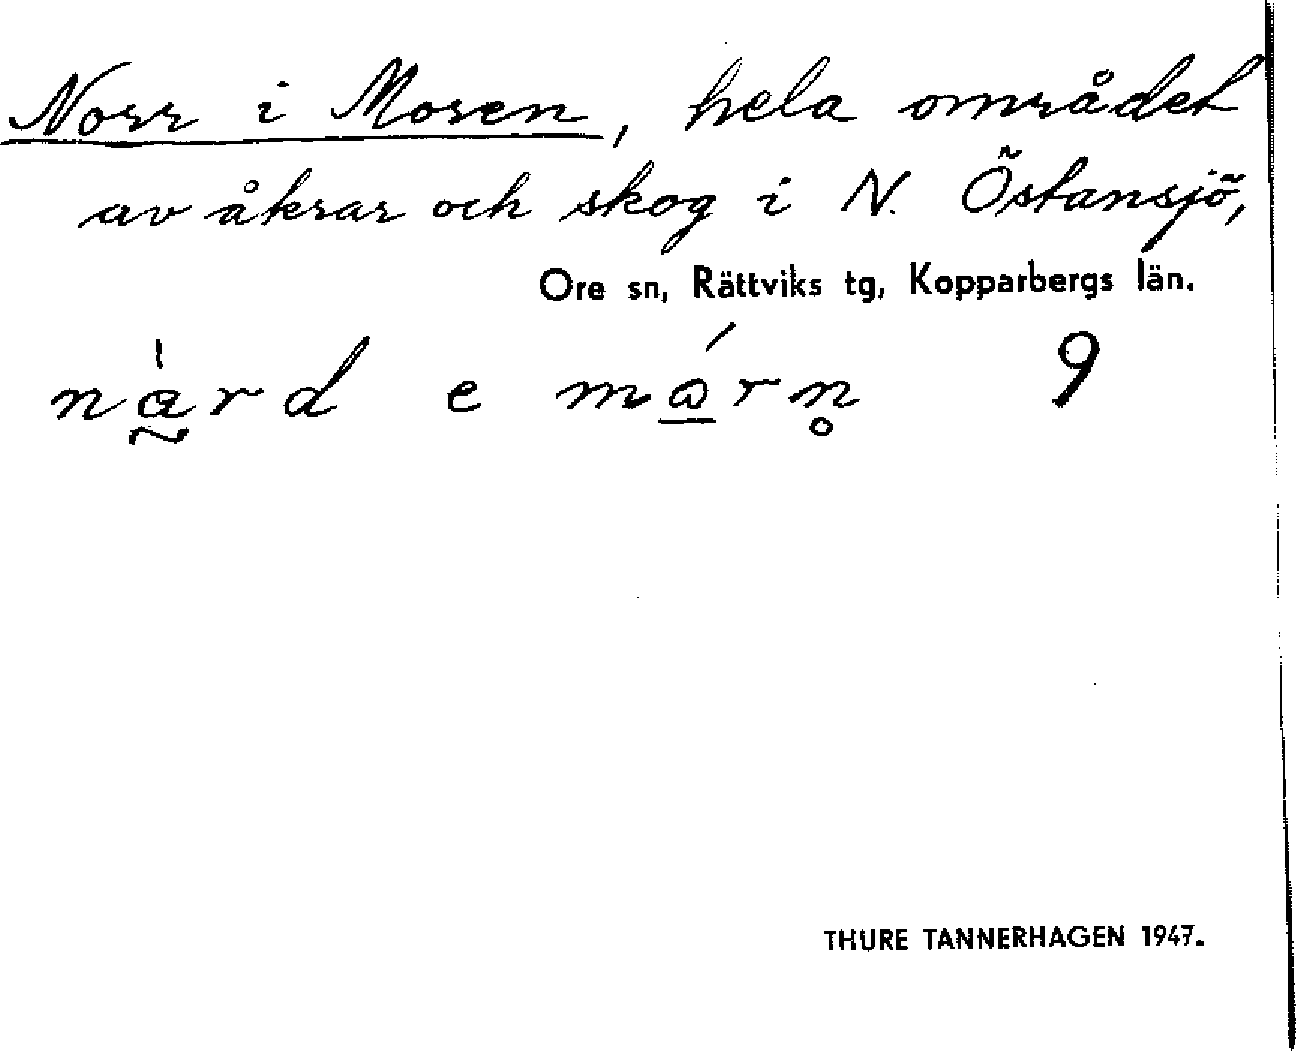 Norr i Moren, hela området
av åkrar och skog i N. Östansjö,
Ore sn, Rättviks tg, Kopparbergs län.
na̰̍rd e mώ̱rn̥ 9
THURE TANNERHAGEN 1947.